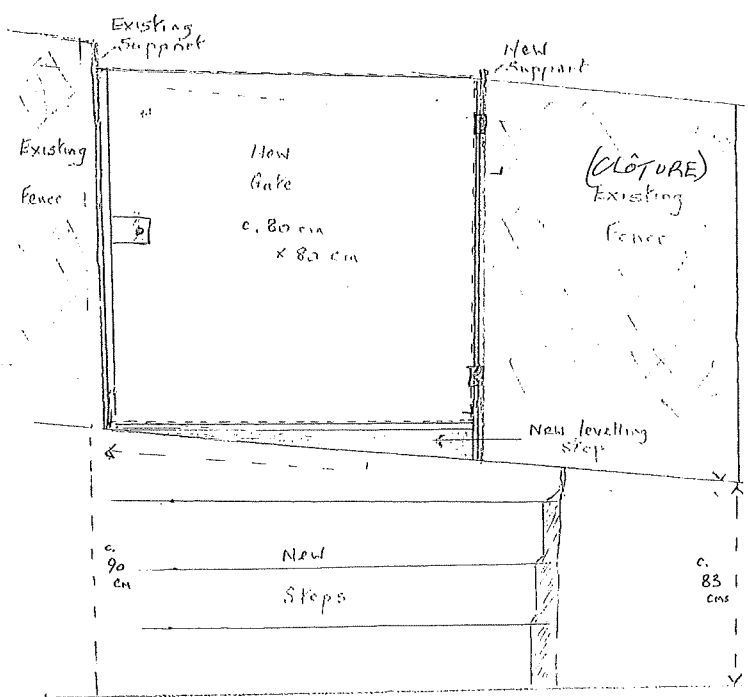 Existing
Support
New
Support
Existing
Fence
New
Gate
c. 80 cm
x 80 cm
(CLÔTURE)
Existing
Fence
New levelling
Step
c.
90
cm
New
Steps
c.
83
cms